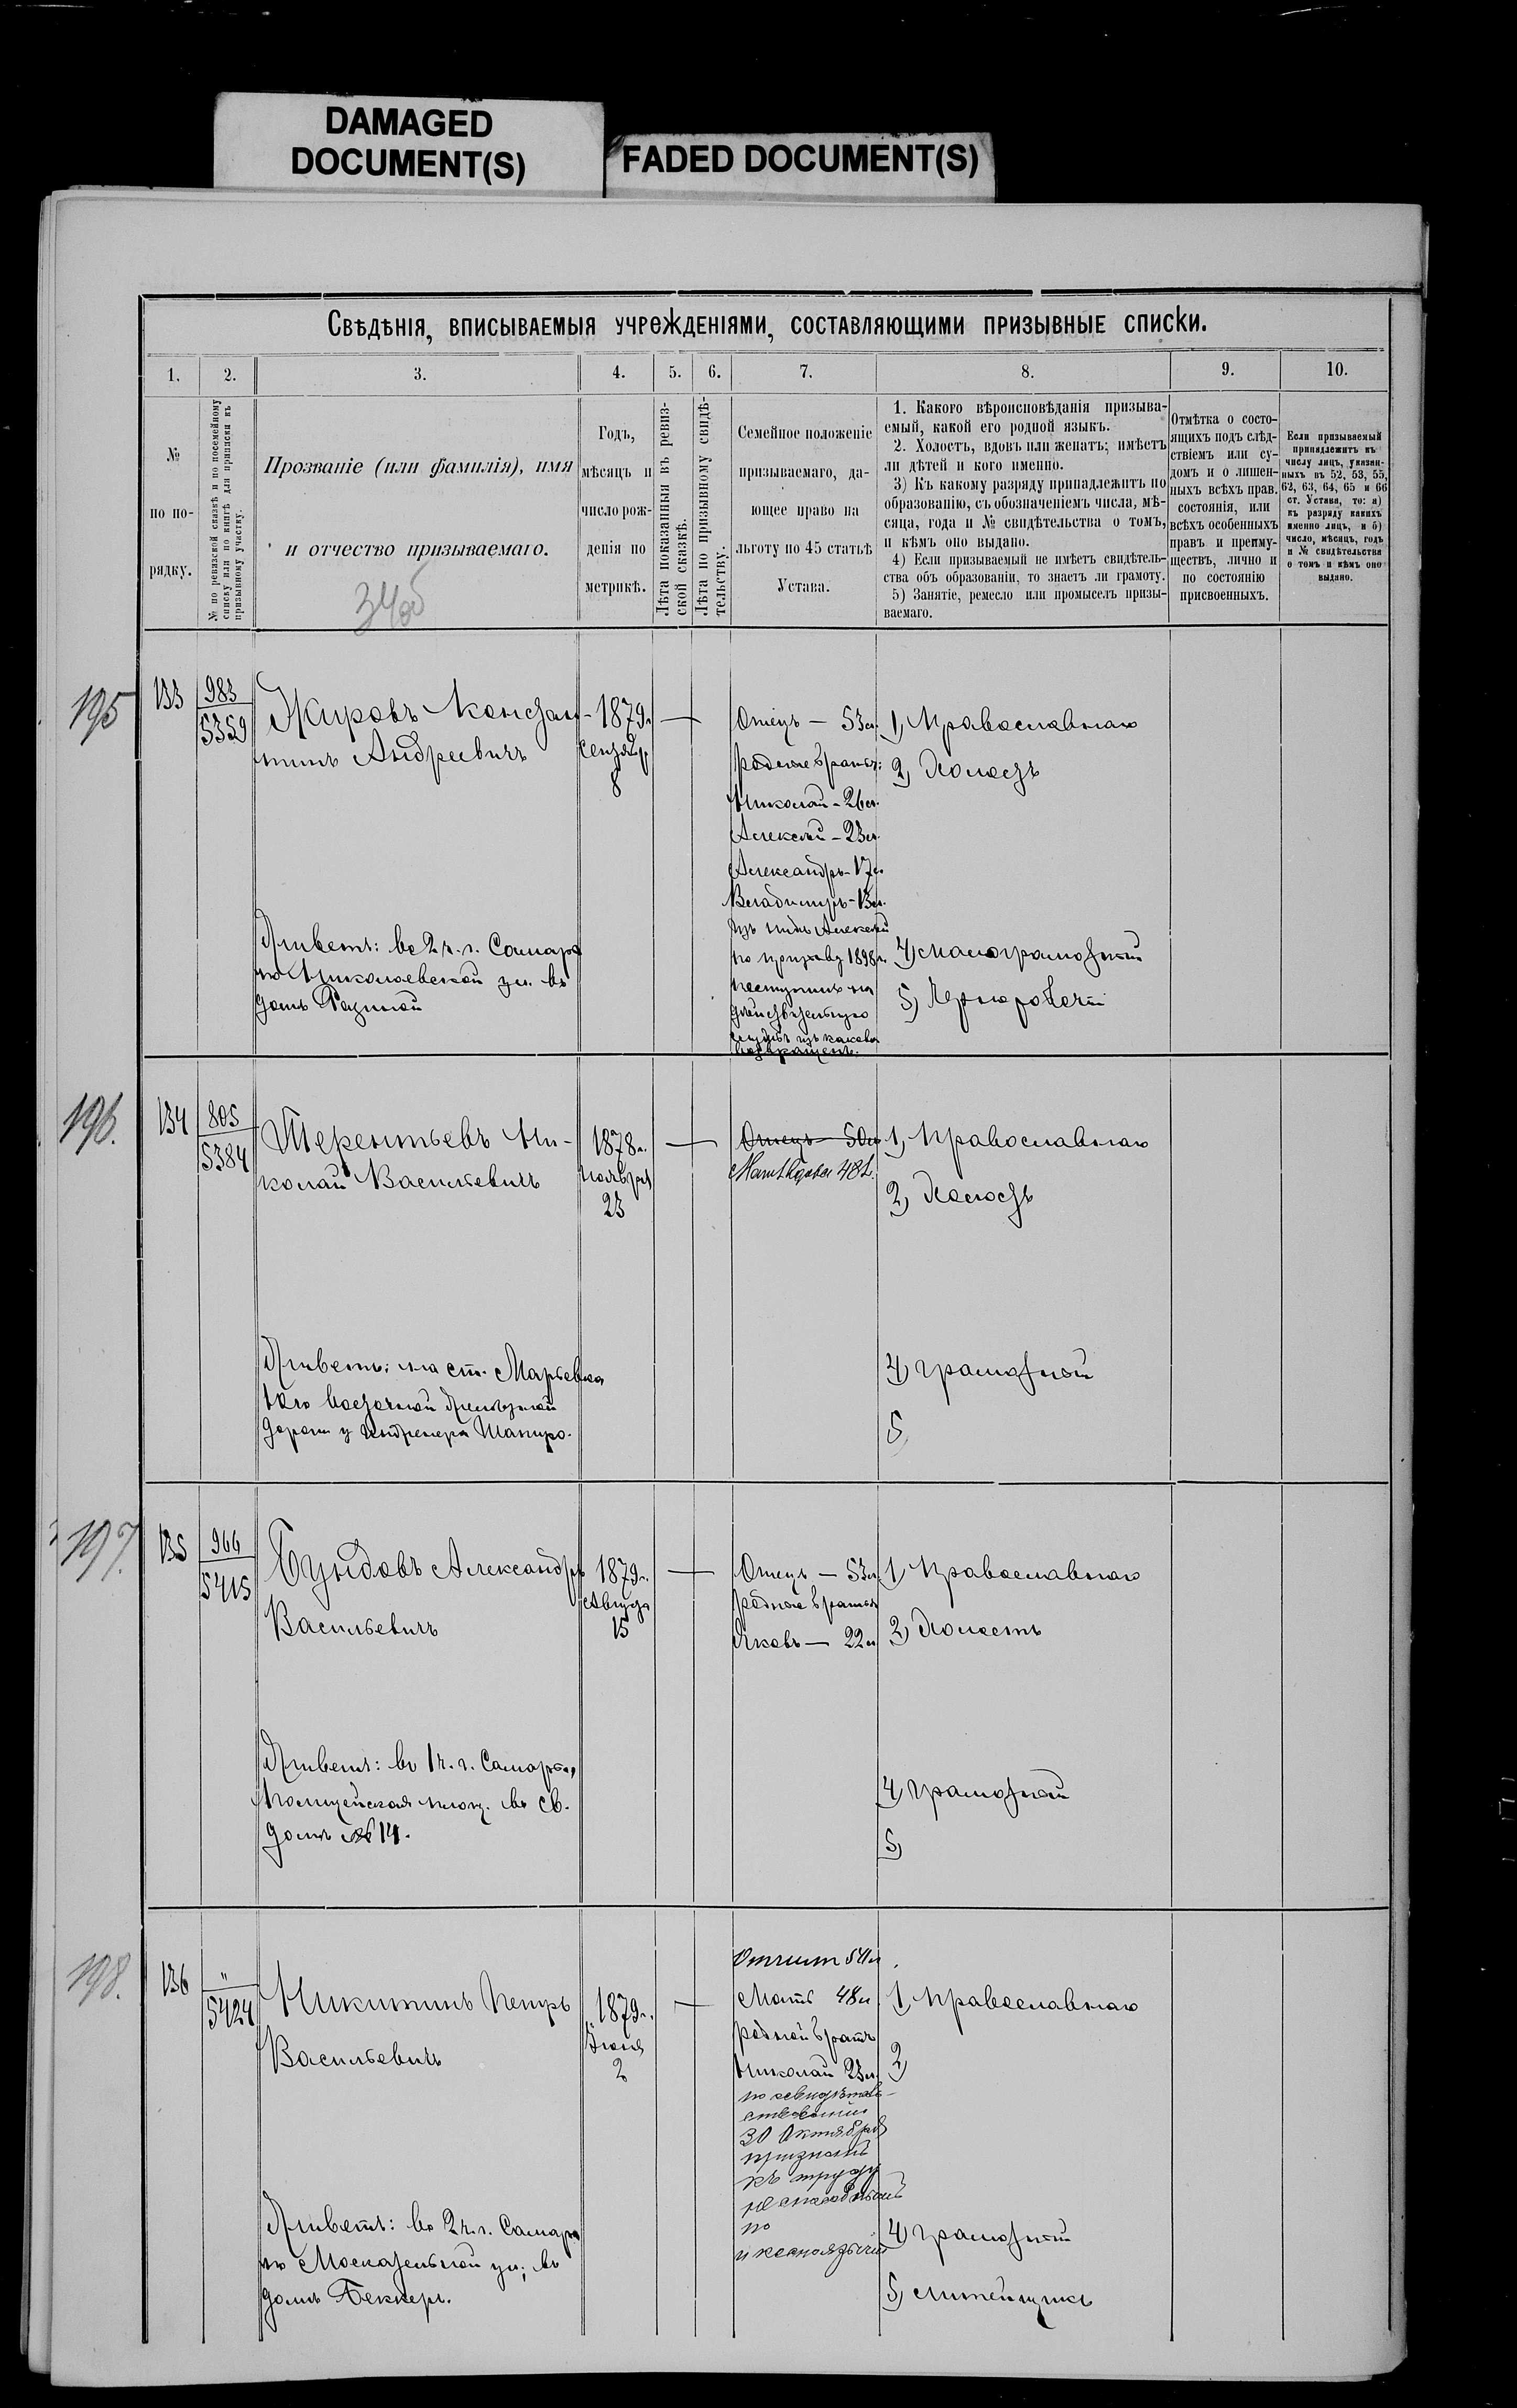 DAMAGED
DOCUMENT(S)
FADED DOCUMENT(S)
Свѣдѣнія, вписываемыя учрежденіями, составляющими призывные списки.
1.
2.
3.
4.
5.
6.
7.
8.
9.
10.
№
по по-
рядку.
№ по ревизской сказкѣ и по посемейному
списку или по книгѣ для приписки къ
призывному участку.
Прозваніе (или фамилія), имя
и отчество призываемаго.
Годъ,
мѣсяцъ и
число рож-
денія по
метрикѣ.
Лѣта показанныя въ ревиз-
ской сказкѣ.
Лѣта по призывному свидѣ-
тельству.
Семейное положеніе
призываемаго, да-
ющее право на
льготу по 45 статьѣ
Устава.
1. Какого вѣроисповѣданія призыва-
емый, какой его родной языкъ.
2. Холостъ, вдовъ или женатъ; имѣетъ
ли дѣтей и кого именно.
3) Къ какому разряду принадлежитъ по
образованію, съ обозначеніемъ числа, мѣ-
сяца, года и № свидѣтельства о томъ,
и кѣмъ оно выдано.
4) Если призываемый не имѣетъ свидѣтель-
ства объ образованіи, то знаетъ ли грамоту.
5) Занятіе, ремесло или промыселъ призы-
ваемаго.
Отмѣтка о состо-
ящихъ подъ слѣд-
ствіемъ или су-
домъ и о лишен-
ныхъ всѣхъ прав.
состоянія, или
всѣхъ особенныхъ
правъ и преиму-
ществъ, лично и
по состоянію
присвоенныхъ.
Если призываемый
принадлежитъ къ
числу лицъ, указан-
ныхъ въ 52, 53, 55,
62, 63, 64, 65 и 66
ст. Устава, то: а)
къ разряду какихъ
именно лицъ, и б)
число, мѣсяцъ, годъ
и № свидѣтельства
о томъ и кѣмъ оно
выдано.
195
133
983
5359
Жировъ Констан-
тинъ Андреевичъ
1879г.
Сентябр.
8
Отецъ — 53 л.
родные братья:
Николай - 26 л.
Алексѣй - 23 л.
Александръ - 17 л.
Владимиръ - 13 л.
Изъ нихъ Алексѣй
по призыву 1898 г.
поступилъ на
дѣйствительную
службу изъ каковой
возвращенъ.
1, Православнаго
2, Холостъ
4, малограмотный
5, Чернорабочій
Живетъ: во 2 ч. г. Самары
по Николаевской ул. въ
домѣ
196.
134
805
5384
Терентьевъ Ни-
колай Васильевичъ
1878г.
Ноября
23
Отецъ — 50 л.
Мать вдова 48 л.
1, Православнаго
2, Холостъ
4, грамотной
5,
Живетъ: на ст. Марьевка
Восточной желѣзной
дороги у инженера Шапиро.
197.
135
966
5415
Бундовъ Александръ
Васильевичъ
1879г.
Августа
15
Отецъ — 53 л.
родные братья
Яковъ — 22 л.
1, Православнаго
2, Холостъ
4, грамотной
5,
Живетъ: во 1 ч. г. Самары,
Полицейская площ. въ св.
домѣ № 14.
198.
136
"
5424
Никитинъ Петръ
Васильевичъ
1879г.
Іюня
2
Отчим 54 л.
Мать 48 л.
родной братъ
Николай 23 л.
по освидѣтель-
ствованіи
30 Октября
признанъ
къ труду
неспособнымъ
по
и косноязычію
1, Православнаго
2,
4, грамотный
5, литейщикъ
Живетъ: во 2 ч. г. Самары
по Москательной ул; въ
домѣ Беккеръ.